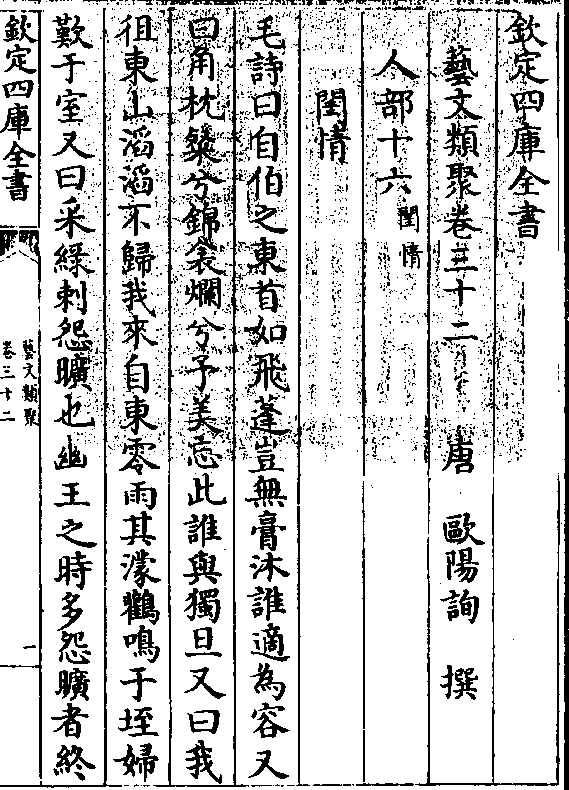 欽定四庫全書
藝文類聚卷三十二　唐　歐陽詢　撰
人部十六 閨情
閨情
毛詩曰自伯之東首如飛蓬豈無膏沐誰適為容又
曰角枕粲兮錦衾爛兮予美忘此誰與獨旦又曰我
徂東山滔滔不歸我來自東零雨其濛鸛鳴于垤婦
歎于室又曰采緑刺怨曠也幽王之時多怨曠者終
欽定四庫全書
藝文類聚
卷三十二
一